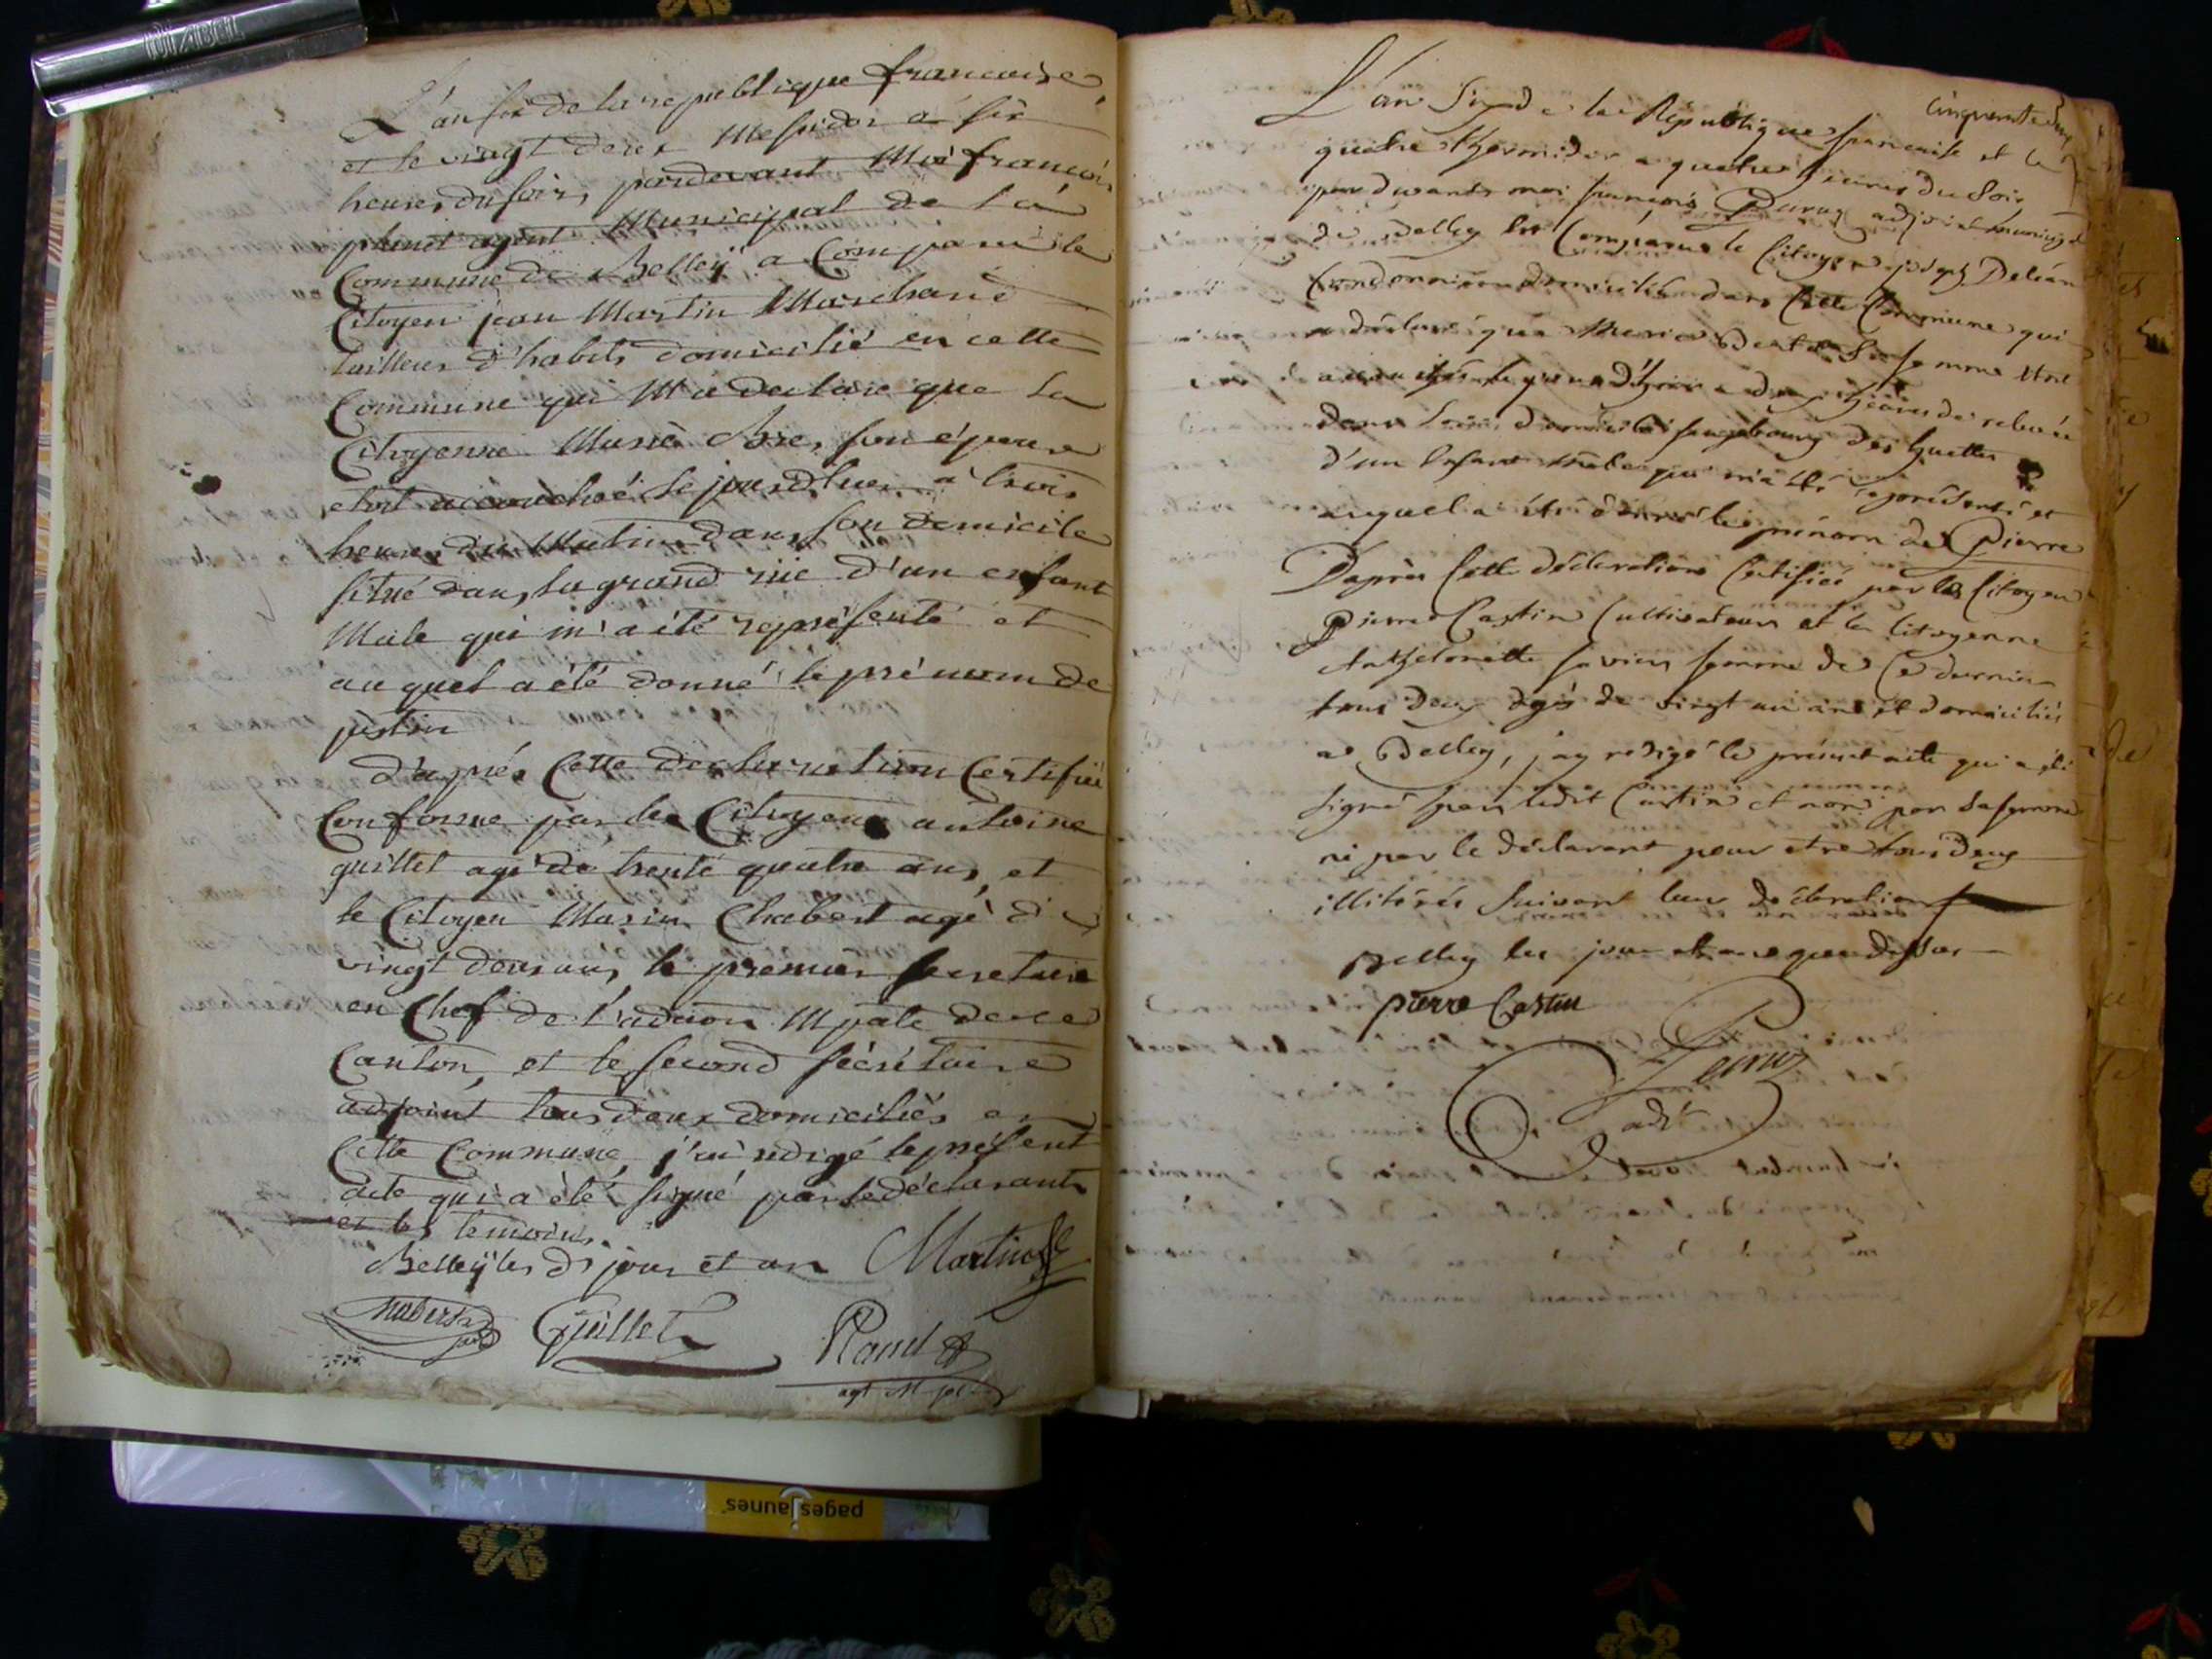 L'an six de la republique francaise
et le vingt deux Messidor a six
heures du soir, pardevant Moi francois
plunet agent Municipal de la
Commune de Belley a Comparu le
Citoyen jean Martin Marchand
tailleur d'habits domicilié en cette
Commune qui M'a declaré que La
Citoyenne Marie son épouse
etoit accouchée le jourd'huer à trois
heures du Matin dans son domicile
situé dans la grand rüe d'un enfant
Male qui m'a été représenté et
au quel a été donné le prénom de
justin
d'après Cette declaration Certifiée
Conforme par les Citoyens antoine
guillet agé de trente quatre ans, et
le Citoyen Marin Chabert agé de
vingt deux ans, le premier secretaire
en Chef de l'adaon Mpale de ce
Canton, et le second sécrétaire
adjoint tous deux domiciliés en
Cette Commune, j'ai redigé le présent
acte qui a été signé par le déclarant
et les temoins.
Belley les ds jour et an Martin
Chabert Guillet
agt Mpal
Cinquante deux
L'an Six de la République francaise et le
quatre thermidor a quatre heures du Soir
par devant moi françois adjoint municipal
de Belley est Comparu le Citoyen joseph
Cordonnier domicilié dans Cette Commune qui
a déclaré que Marie Sa femme etoit
accouchée le jour d'hier a dix heures de relevée
dans Son domicile fauxbourg des
d'un Enfant mâle qui m'a été représenté et
auquel a été donné le prénom de Pierre
D'après Cette déclaration Certifiée par les Citoyen
Pierre Castin Cultivateur et la Citoyenne
Anthelmette femme de Ce dernier
tous deux agés de vingt un ans et domiciliés
a Belley, j'ay redigé le présent acte qui a été
signé par ledit Castin et non par Sa femme
ni par le déclarant pour etre tous deux
illitérés Suivant leur déclaration
Belley les jour et an que dessus
pierre Castin
adjt
pagesjaunes